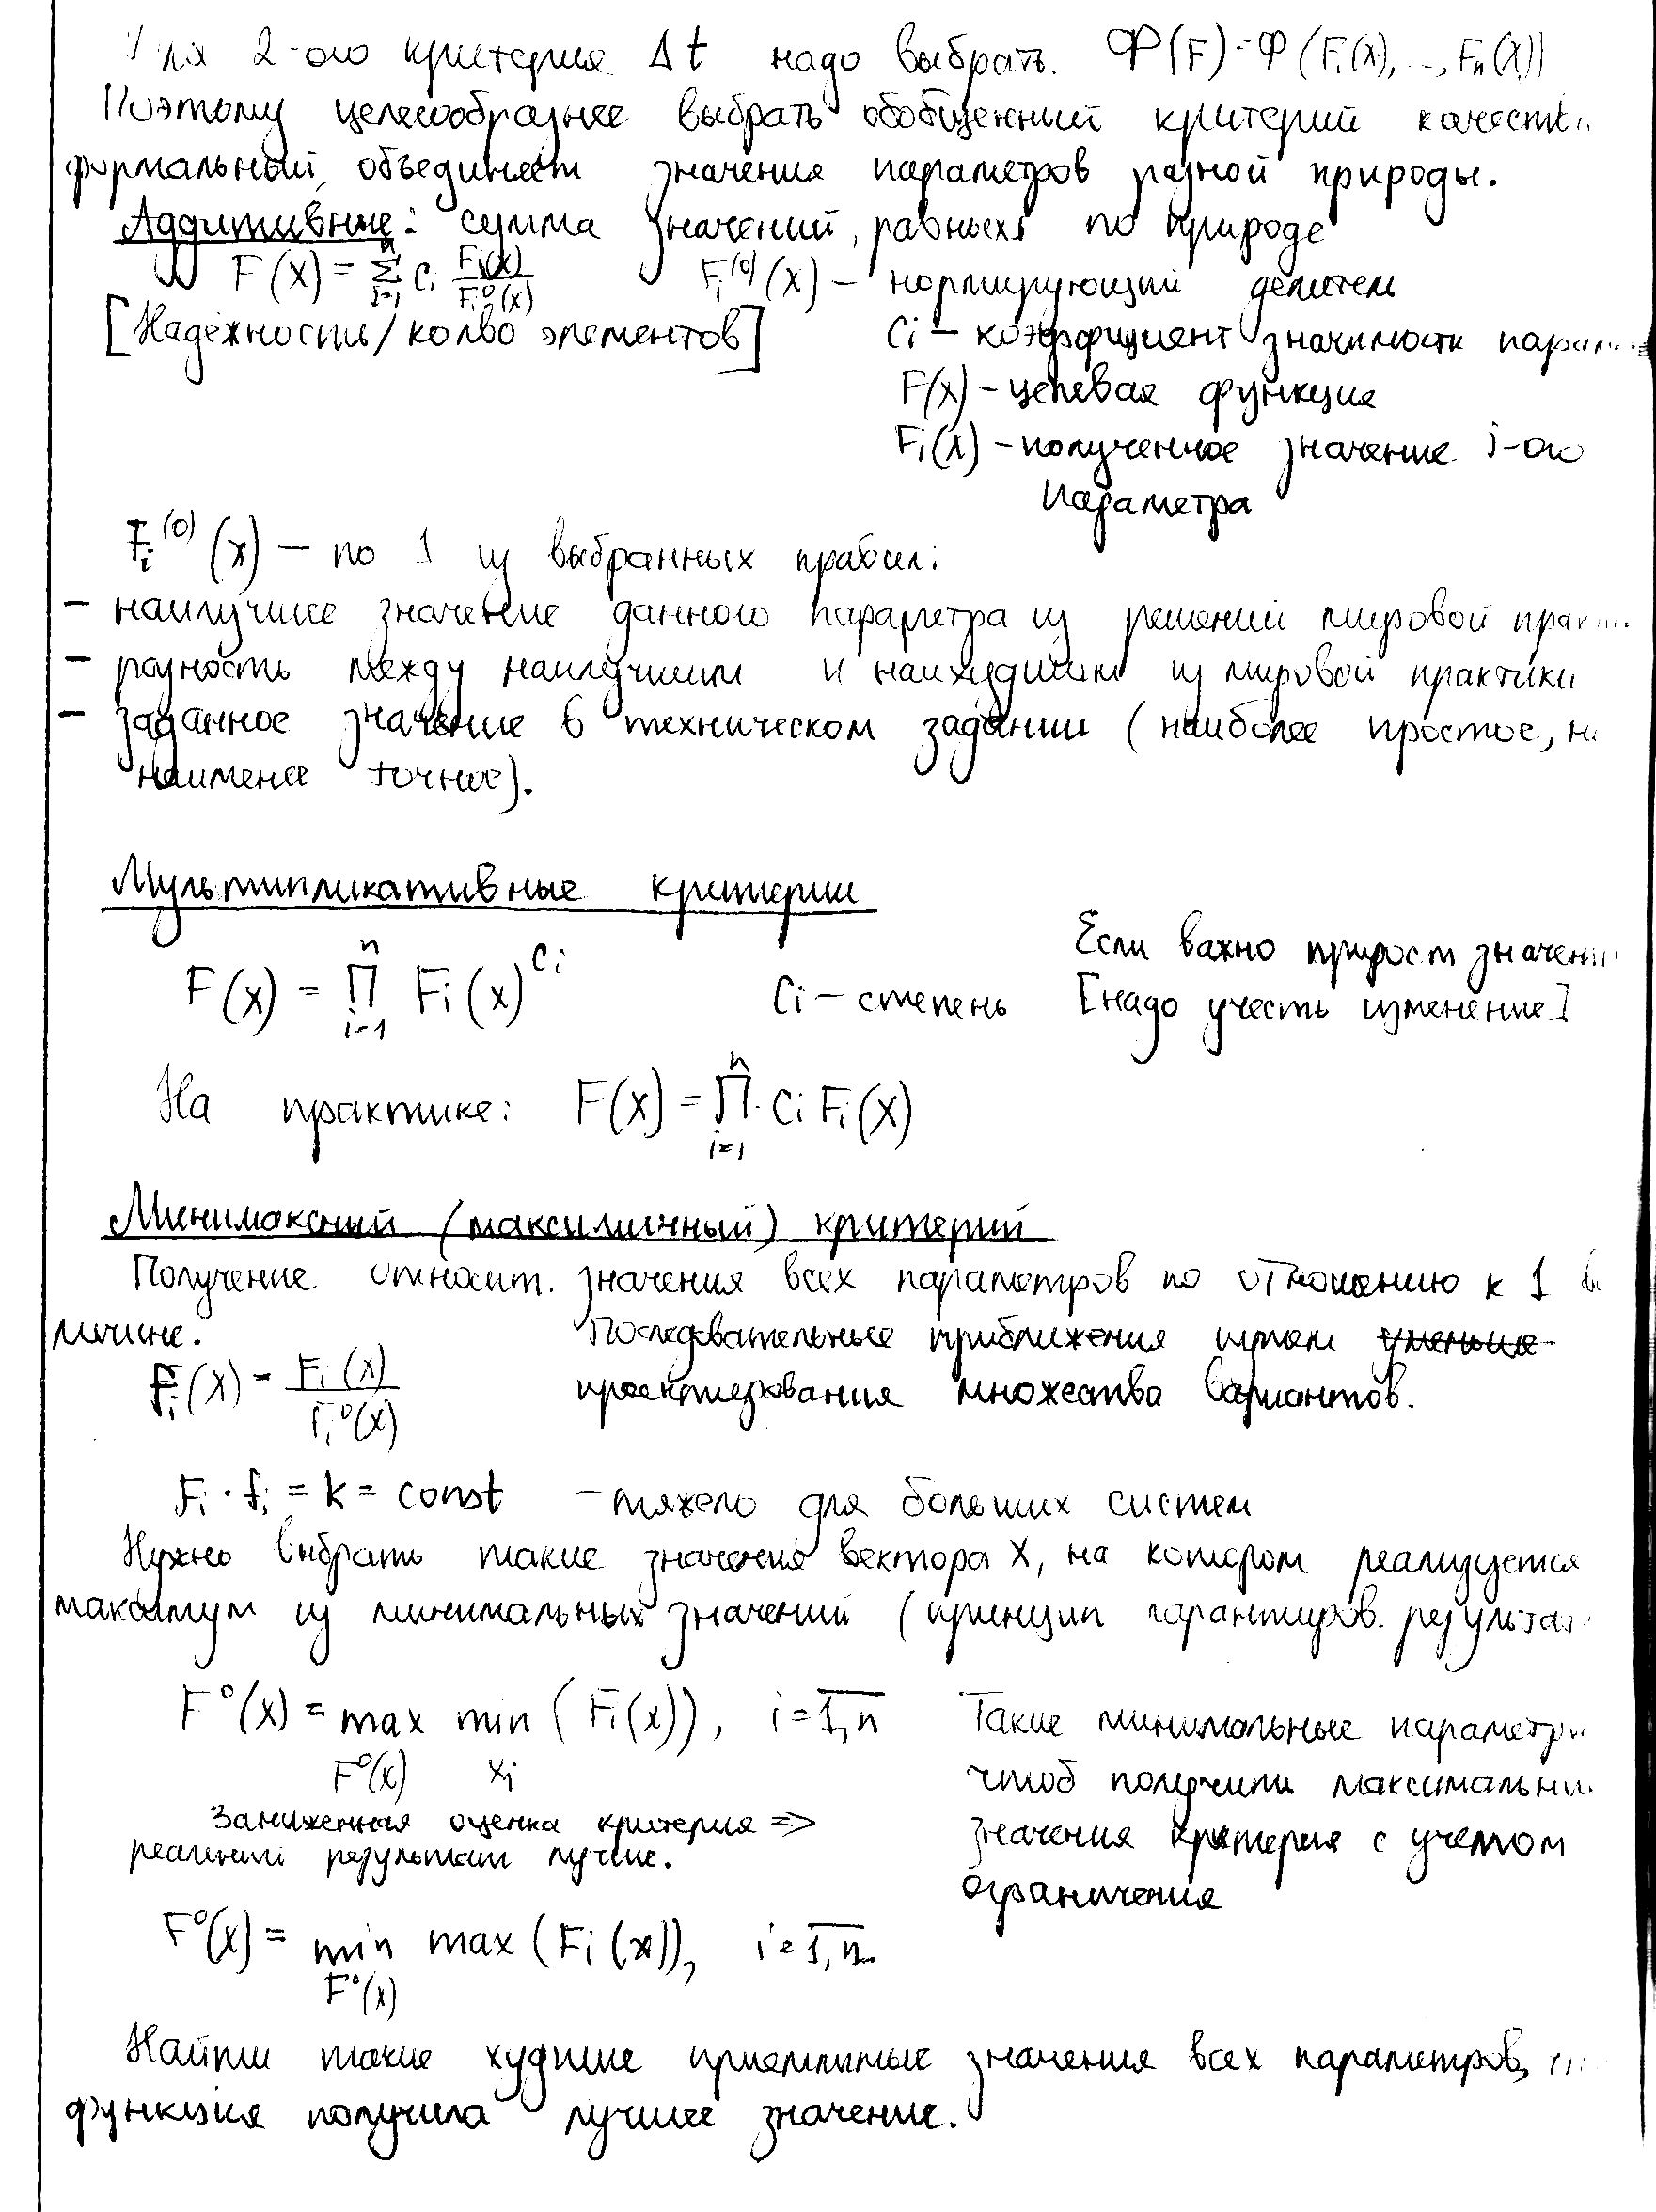 Для 2-ого критерия Δt надо выбрать. Φ(F)=φ(F₁(x),..., Fₙ(x))
Поэтому целесообразнее выбрать обобщенный критерий качеств
формальный, объединяет значения параметров разной природы.
Аддитивные: сумма значений, равных по природе
F(x) = Σ_{i=1}^{n} Cᵢ Fᵢ(x)/Fᵢ⁰(x) Fᵢ⁽⁰⁾(x) – нормирующий делитель
[Надёжность/колво элементов] Cᵢ – коэффициент значимости парам
F(x) – целевая функция
Fᵢ(x) – полученное значение i-ого
параметра
Fᵢ⁽⁰⁾(x) – по 1 из выбранных правил:
– наилучшее значение данного параметра из решений мировой прак
– разность между наилучшим и наихудшим из мировой практики
– заданное значение в техническом задании (наиболее простое, н
наименее точное).
Мультипликативные критерии
F(x) = ∏_{i=1}^{n} Fᵢ(x)^{Cᵢ} Cᵢ – степень Если важно прирост значени
[надо учесть изменение]
На практике: F(x) = ∏_{i=1}^{n} Cᵢ Fᵢ(x)
Минимаксный (максиминный) критерий
Получение относит. значения всех параметров по отношению к 1
личине. Последовательные приближения путем
fᵢ(x) = Fᵢ(x)/Fᵢ⁰(x) проектирования множества вариантов.
Fᵢ · fᵢ = k = const – тяжело для больших систем
Нужно выбрать такие значения вектора X, на котором реализуется
максимум из минимальных значений (принцип гарантиров. результат
F⁰(x) = max min (Fᵢ(x)), i = 1,n Такие минимальные параметры
F⁰(x) xᵢ чтоб получили максимальны
Заниженная оценка критерия ⇒ значения критерия с учетом
реальный результат лучше. ограничения
F⁰(x) = min max (Fᵢ(x)), i = 1,n
F⁰(x)
Найти такие худшие приемлимые значения всех параметров,
функция получила лучшее значение.